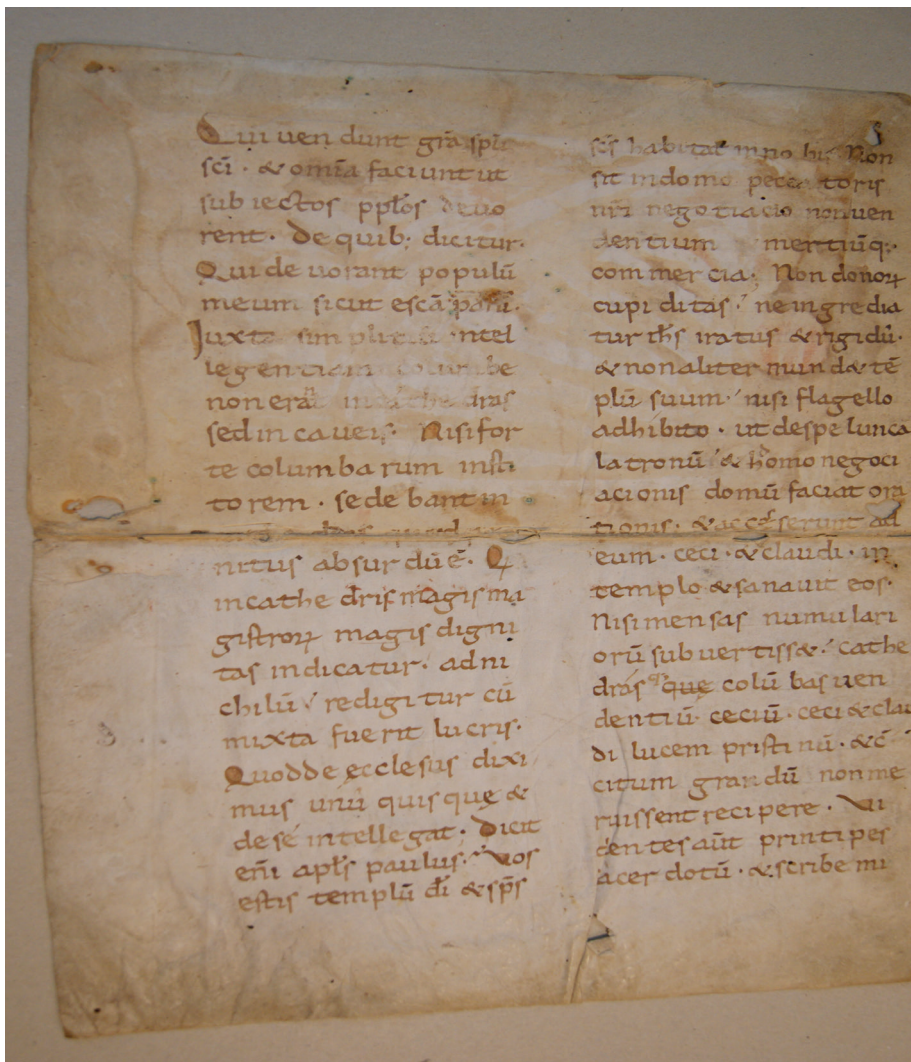 Qui uen dunt grā spū
sc̄i · & om̄ia faciunt ut
sub iectos pp̄los deuo
rent · De quib; dicitur ·
Qui de uorant populū
meum sicut escā panū ·
Juxta sim plicē intel
legentiam columbe
non erāt in cathedras
sed in caueis · Nisi for
te columba rum insti
torem · sede bant in
quod
nitus absur dū ē · Qꝛ
in cathe dris magis ma
gistroꝝ magis digni
tas indicatur · ad ni
chilū redigitur cū
mixta fuerit lucris ·
Quod de ecclesiis dixi
mus unū quis que &
de se intellegat · Dicit
eni apl̄s paulus · Uos
estis templū dī & sp̄s
sc̄s habitat in uo bis · Non
sit in domo pecca toris
nr̄i negotiacio non uen
dentium mertiūq;
com mer cia · Non donoꝝ
cupi ditas · ne ingredia
tur ih̄s iratus & rigidū ·
& non aliter mund& tē
plū suum · nisi flagello
adhibito · ut de spelunca
latronū & homo negoci
acionis domū faciat ora
tionis · & acceserunt ad
eum · ceci · & claudi · in
templo & sanauit eos ·
Nisi mensas numulari
orū subuertiss& · cathe
dras que colū bas uen
dentiū · ceciū · ceci & clau
di lucem pristinū · & c̄
citum grandū non me
ruissent recipere · Ui
dentes aūt printipes
acerdotū · & scribe mi